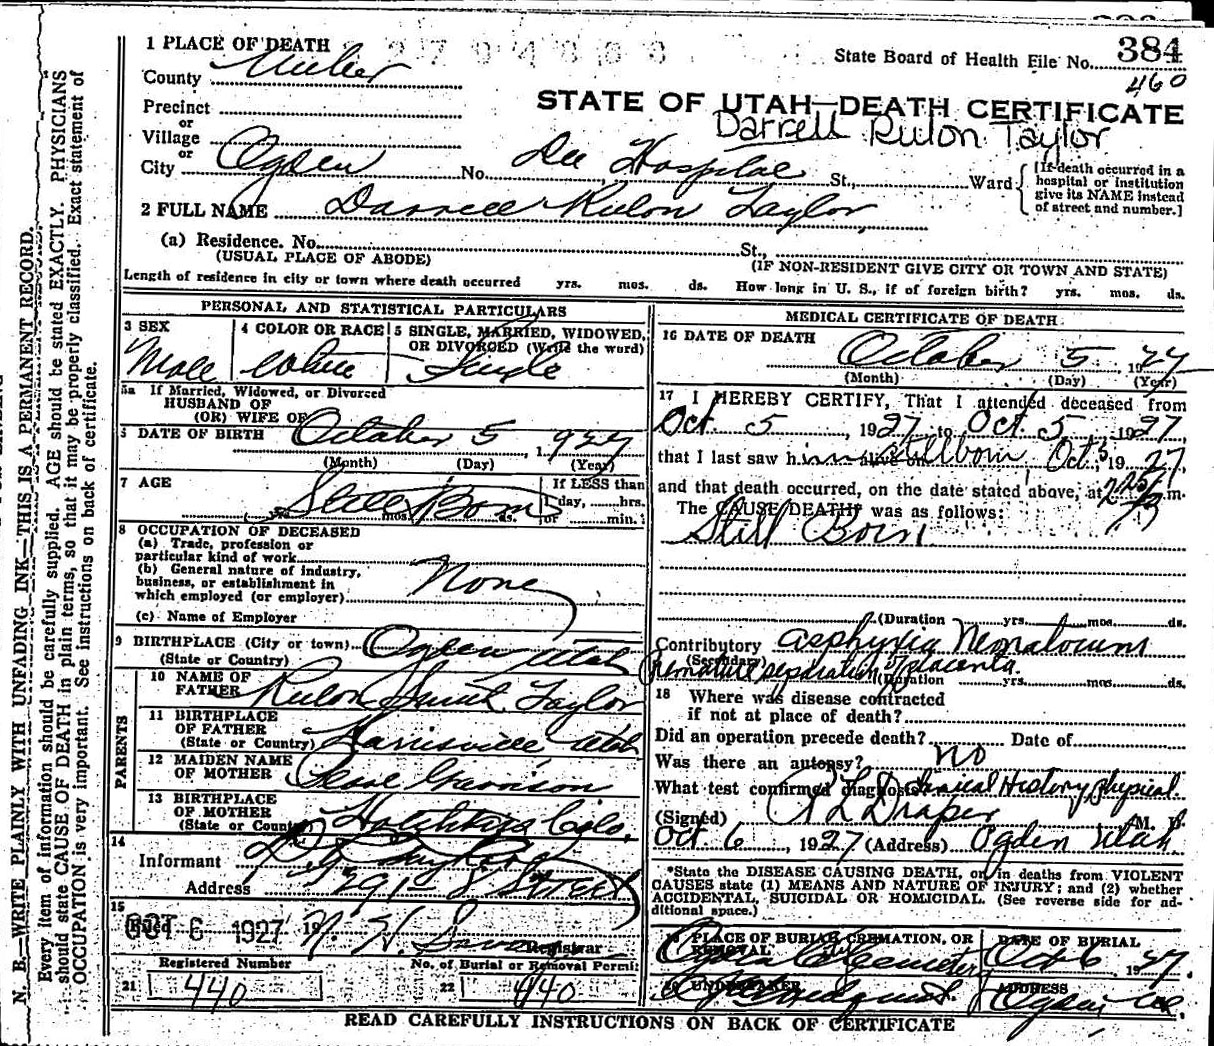 384
460
1 PLACE OF DEATH
State Board of Health File No.
County Weber
STATE OF UTAH—DEATH CERTIFICATE
Precinct
or
Village
Darrell Rulon Taylor
or
City Ogden No. Dee Hospital St., Ward
[If death occurred in a hospital or institution give its NAME instead of street and number.]
2 FULL NAME Darrell Rulon Taylor
(a) Residence. No. St.,
(USUAL PLACE OF ABODE) (IF NON-RESIDENT GIVE CITY OR TOWN AND STATE)
Length of residence in city or town where death occurred yrs. mos. ds. How long in U. S., if of foreign birth? yrs. mos. ds.
PERSONAL AND STATISTICAL PARTICULARS
3 SEX Male
4 COLOR OR RACE White
5 SINGLE, MARRIED, WIDOWED, OR DIVORCED (Write the word) Single
5a If Married, Widowed, or Divorced
HUSBAND OF
(OR) WIFE OF
DATE OF BIRTH October 5, 1927
(Month) (Day) (Year)
7 AGE Still Born
yrs. mos. ds.
If LESS than
1 day, hrs.
or min.
8 OCCUPATION OF DECEASED
(a) Trade, profession or
particular kind of work
(b) General nature of industry,
business, or establishment in
which employed (or employer) None
(c) Name of Employer
9 BIRTHPLACE (City or town) Ogden, Utah
(State or Country)
PARENTS
10 NAME OF
FATHER Rulon Taylor
11 BIRTHPLACE
OF FATHER
(State or Country) Harrisville Utah
12 MAIDEN NAME
OF MOTHER Garrison
13 BIRTHPLACE
OF MOTHER
(State or Country) Colo.
14
Informant
Address Street
15
Filed OCT 6 1927 19 Registrar
Registered Number
21 440
No. of Burial or Removal Permit
22 440
MEDICAL CERTIFICATE OF DEATH
16 DATE OF DEATH October 5, 1927
(Month) (Day) (Year)
17 I HEREBY CERTIFY, That I attended deceased from
Oct. 5, 1927 to Oct. 5 1927,
that I last saw him alive on stillborn, Oct. 5 1927,
and that death occurred, on the date stated above, at m.
The CAUSE DEATH was as follows:
Still Born
(Duration yrs. mos. ds.
Contributory asphyxia Neonatorum
(Secondary) Premature separation of placenta.
(Duration yrs. mos. ds.
18 Where was disease contracted
if not at place of death?
Did an operation precede death? Date of
Was there an autopsy? no
What test confirmed diagnosis Clinical History, Physical.
(Signed) Draper M. D.
Oct 6, 1927 (Address) Ogden Utah
*State the DISEASE CAUSING DEATH, or in deaths from VIOLENT
CAUSES state (1) MEANS AND NATURE OF INJURY; and (2) whether
ACCIDENTAL, SUICIDAL OR HOMICIDAL. (See reverse side for ad-
ditional space.)
PLACE OF BURIAL, CREMATION, OR
REMOVAL Ogden Cemetery
DATE OF BURIAL
Oct 6 1927.
20 UNDERTAKER
ADDRESS
Ogden
READ CAREFULLY INSTRUCTIONS ON BACK OF CERTIFICATE
N. B.—WRITE PLAINLY WITH UNFADING INK—THIS IS A PERMANENT RECORD.
Every item of information should be carefully supplied. AGE should be stated EXACTLY. PHYSICIANS
should state CAUSE OF DEATH in plain terms, so that it may be properly classified. Exact statement of
OCCUPATION is very important. See instructions on back of certificate.